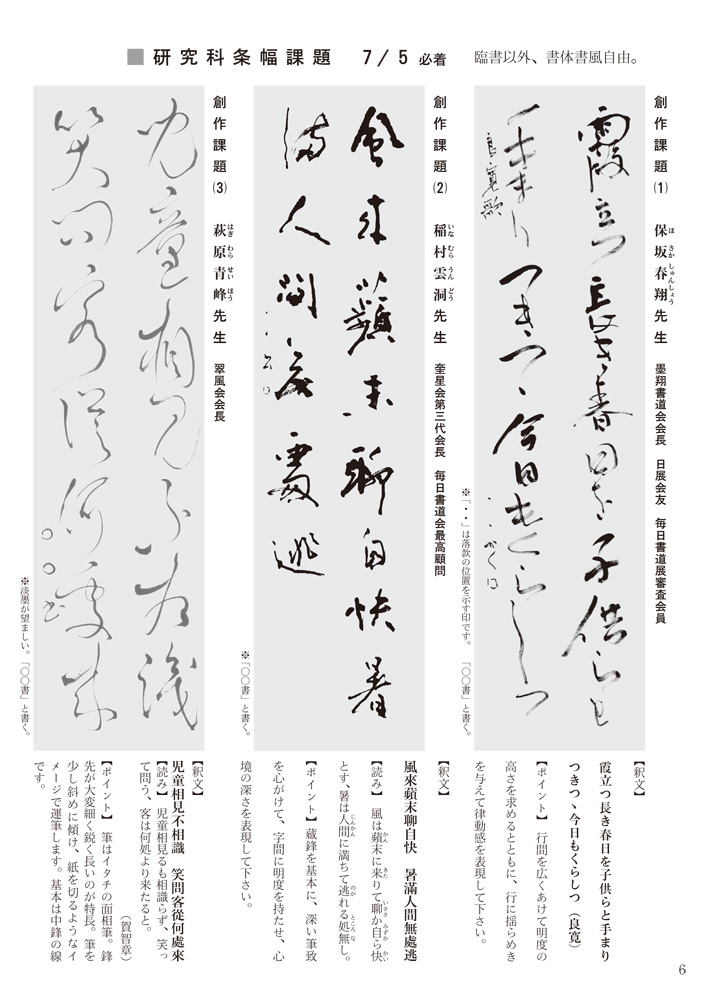 ■研究科条幅課題 7/5 必着 臨書以外、書体書風自由。
創作課題(1) 保坂春翔先生 墨翔書道会会長 日展会友 毎日書道展審査会員
ほさかしゅんしょう
霞立つ長き春日を子供らと
手まりつきつゝ今日もくらしつ
良寛歌
※「・・」は落款の位置を示す印です。 「〇〇書」と書く。
【釈文】
霞立つ長き春日を子供らと手まり
つきつゝ今日もくらしつ (良寛)
【ポイント】 行間を広くあけて明度の
高さを求めるとともに、行に揺らめき
を与えて律動感を表現して下さい。
創作課題(2) 稲村雲洞先生 奎星会第三代会長 毎日書道会最高顧問
いなむらうんどう
風來蘋末聊自快暑
滿人間無處逃
※「〇〇書」と書く。
【釈文】
風來蘋末聊自快 暑滿人間無處逃
【読み】 風は蘋末に来りて聊か自ら快
かん きた いささ みずか かい
とす、暑は人間に満ちて逃れる処無し。
じんかん み のが ところな
【ポイント】 蔵鋒を基本に、深い筆致
を心がけて、字間に明度を持たせ、心
境の深さを表現して下さい。
創作課題(3) 萩原青峰先生 翠風会会長
はぎわらせいほう
児童相見不相識
笑問客從何處來
〇〇書
※淡墨が望ましい。「〇〇書」と書く。
【釈文】
児童相見不相識 笑問客從何處來
【読み】児童相見るも相識らず、笑っ
て問う、客は何処より来たると。
(賀智章)
【ポイント】 筆はイタチの面相筆。鋒
先が大変細く鋭く長いのが特長。筆を
少し斜めに傾け、紙を切るようなイ
メージで運筆します。基本は中鋒の線
です。
6